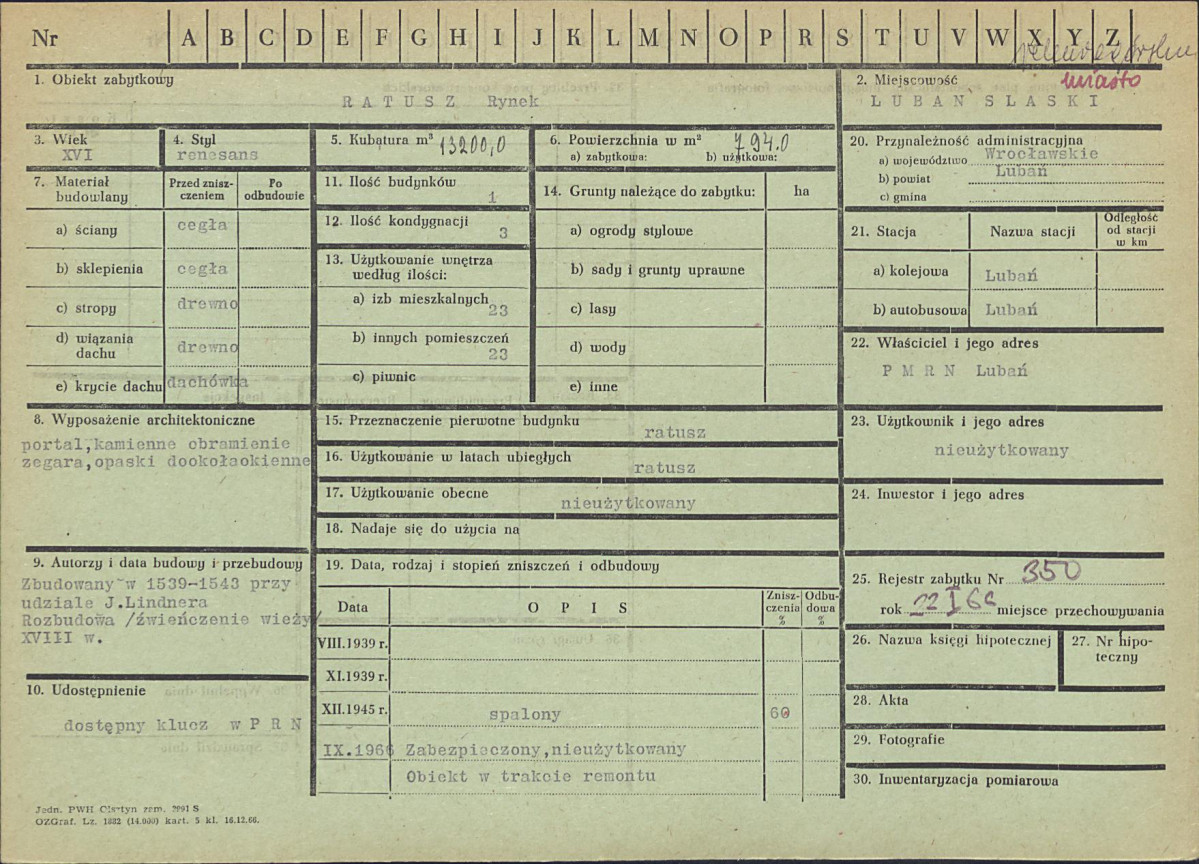 Nr A B C D E F G H I J K L M N O P R S T U V W X Y Z
miasto
1. Obiekt zabytkowy
RATUSZ Rynek
2. Miejscowość
LUBAN SLASKI
3. Wiek
XVI
4. Styl
renesans
5. Kubatura m³ 13200,0
6. Powierzchnia w m² 794.0
a) zabytkowa: b) użytkowa:
7. Materiał budowlany
Przed zniszczeniem
Po odbudowie
a) ściany cegła
b) sklepienia cegła
c) stropy drewno
d) wiązania dachu drewno
e) krycie dachu dachówka
8. Wyposażenie architektoniczne
portal,kamienne obramienie
zegara,opaski dookołaokienne
9. Autorzy i data budowy i przebudowy
Zbudowany w 1539-1543 przy
udziale J.Lindnera
Rozbudowa /zwieńczenie wieży/
XVIII w.
10. Udostępnienie
dostępny klucz w P R N
11. Ilość budynków 1
12. Ilość kondygnacji 3
13. Użytkowanie wnętrza
według ilości:
a) izb mieszkalnych 23
b) innych pomieszczeń 23
c) piwnic
14. Grunty należące do zabytku: ha
a) ogrody stylowe
b) sady i grunty uprawne
c) lasy
d) wody
e) inne
15. Przeznaczenie pierwotne budynku ratusz
16. Użytkowanie w latach ubiegłych ratusz
17. Użytkowanie obecne nieużytkowany
18. Nadaje się do użycia na
19. Data, rodzaj i stopień zniszczeń i odbudowy
Data O P I S Zniszczenia % Odbudowa %
VIII.1939 r.
XI.1939 r.
XII.1945 r. spalony 60
IX.1966 Zabezpieczony,nieużytkowany
Obiekt w trakcie remontu
20. Przynależność administracyjna
a) województwo Wrocławskie
b) powiat Lubań
c) gmina
21. Stacja Nazwa stacji Odległość od stacji w km
a) kolejowa Lubań
b) autobusowa Lubań
22. Właściciel i jego adres
P M R N Lubań
23. Użytkownik i jego adres
nieużytkowany
24. Inwestor i jego adres
25. Rejestr zabytku Nr 350
rok 22 I 66 miejsce przechowywania
26. Nazwa księgi hipotecznej
27. Nr hipoteczny
28. Akta
29. Fotografie
30. Inwentaryzacja pomiarowa
Jedn. PWH Olsztyn zam. 2991 S
OZGraf. Lz. 1882 (14.000) kart. 5 kl. 16.12.66.